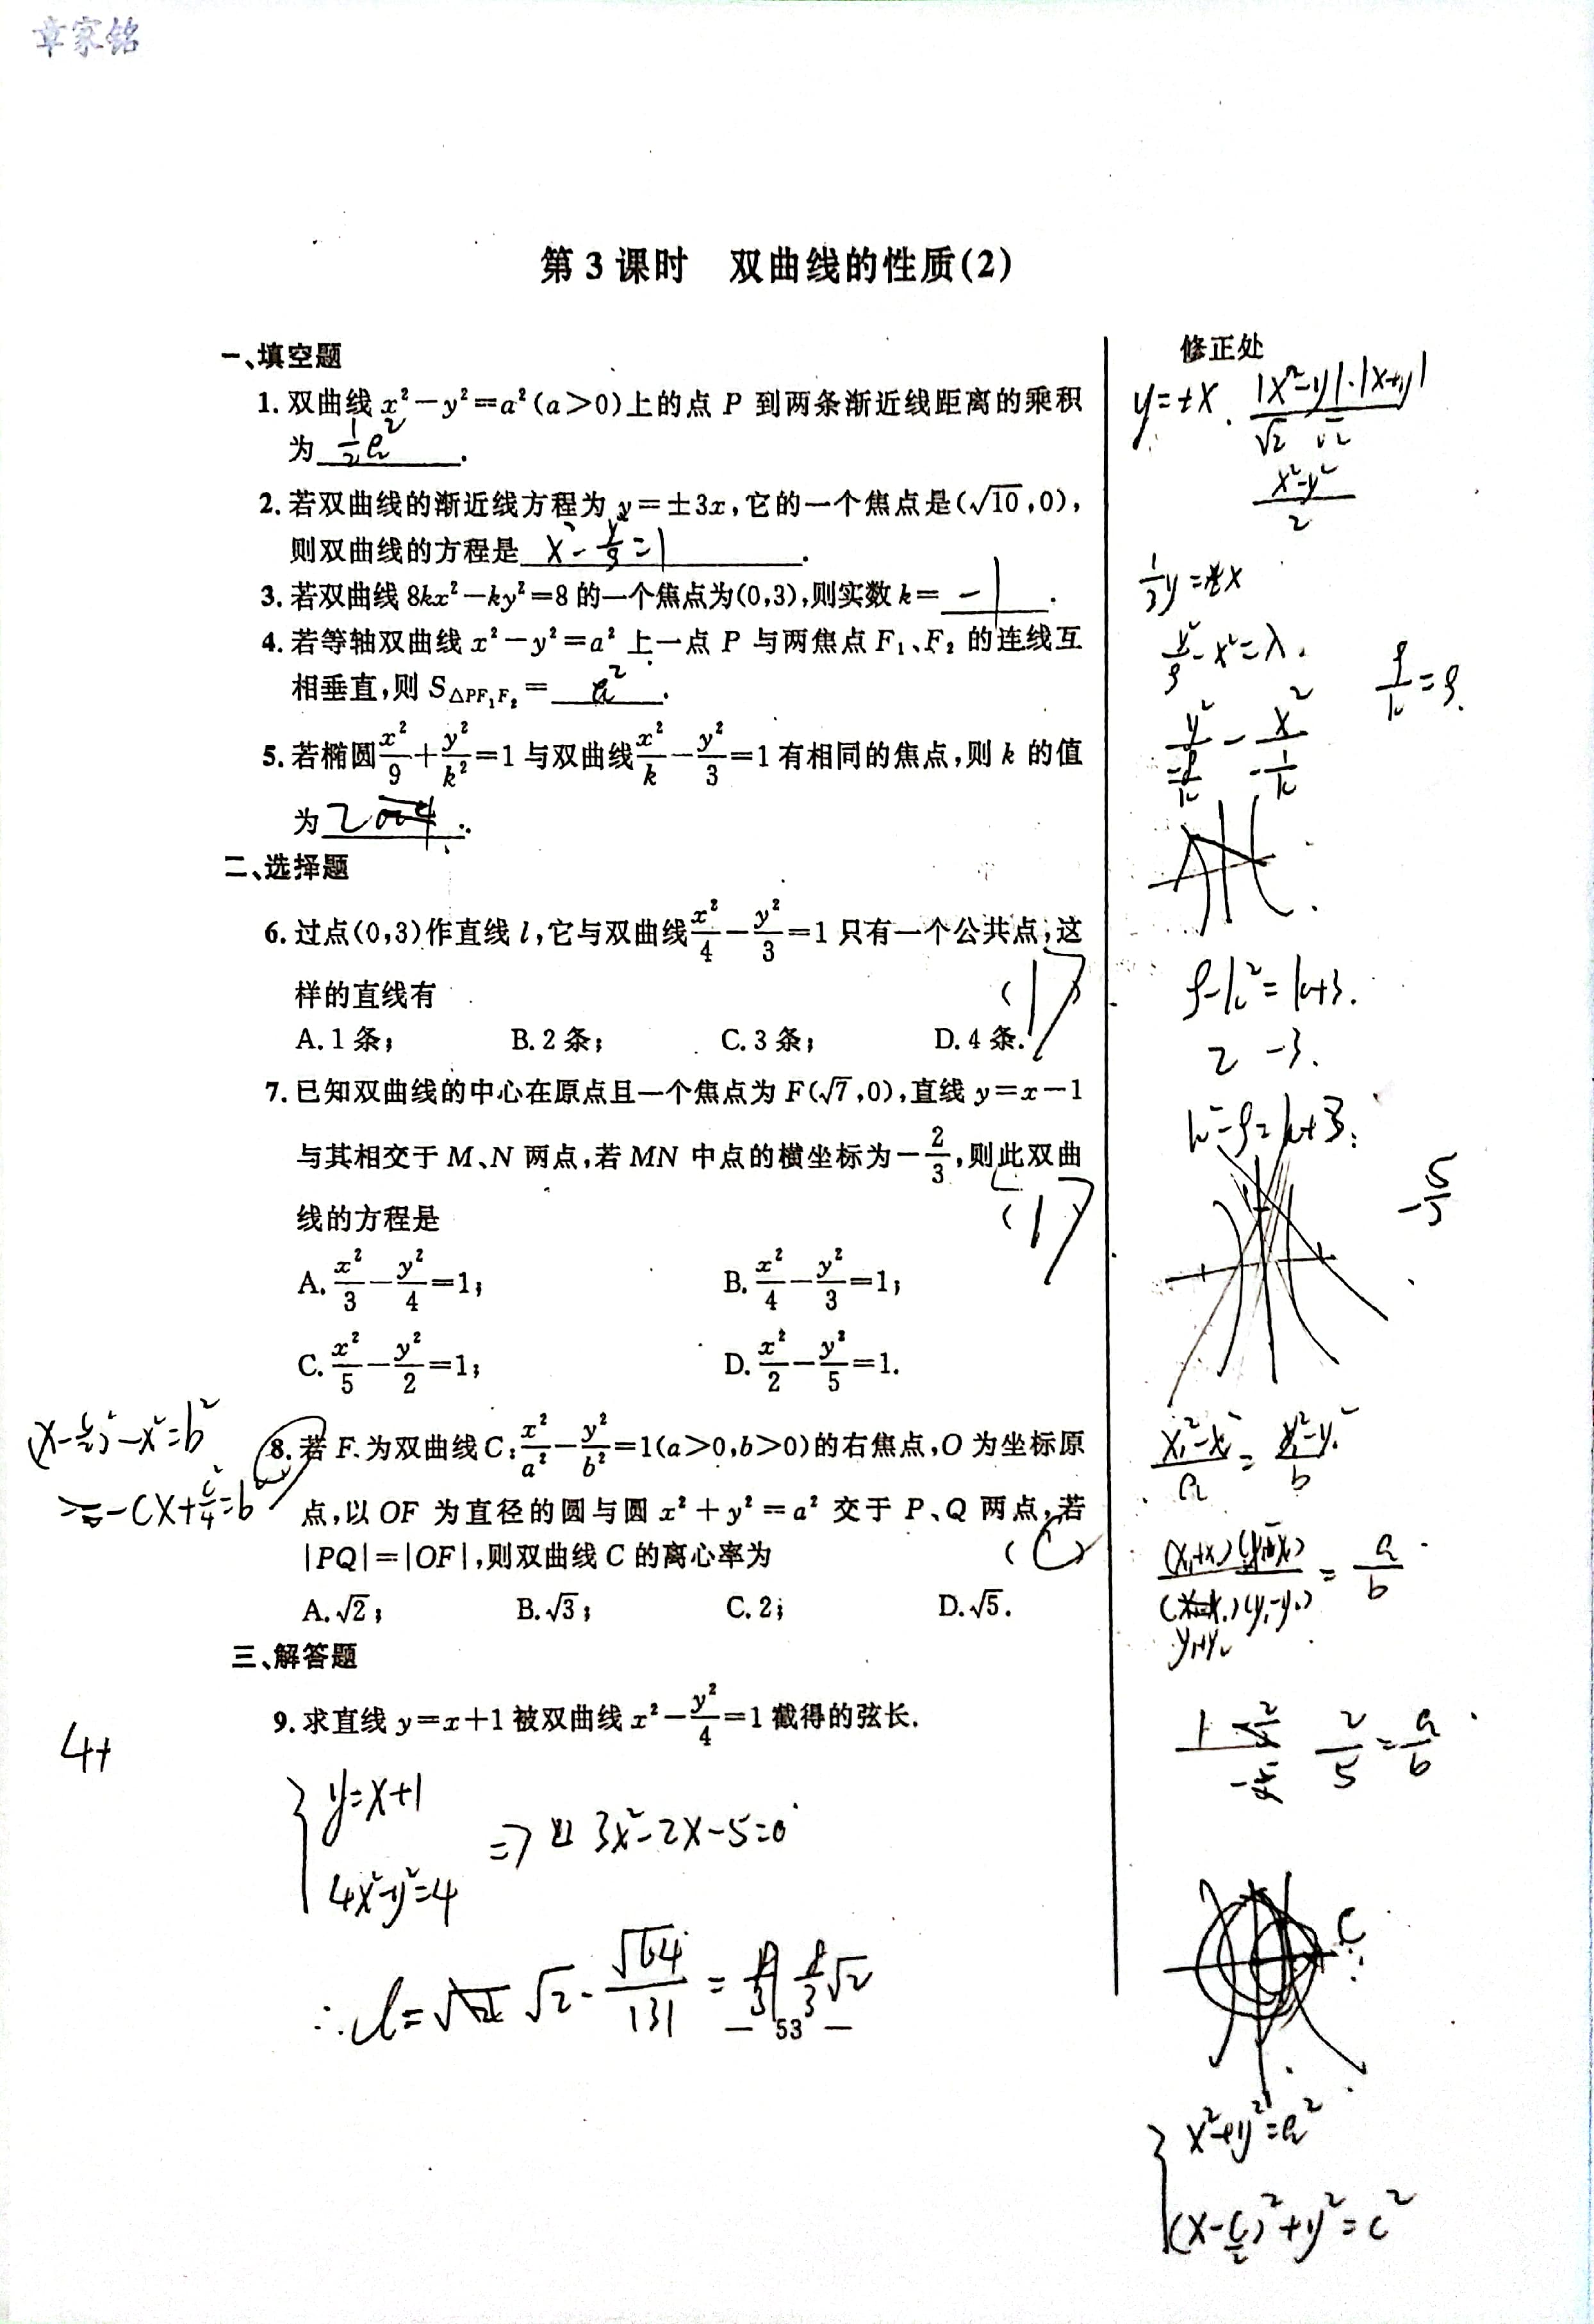 章家铭
第3课时 双曲线的性质(2)
一、填空题
1. 双曲线 x²-y²=a²(a>0)上的点 P 到两条渐近线距离的乘积
为 ½a² .
2. 若双曲线的渐近线方程为 y=±3x,它的一个焦点是(√10,0),
则双曲线的方程是 x²-y²/9=1 .
3. 若双曲线 8kx²-ky²=8 的一个焦点为(0,3),则实数 k= -1 .
4. 若等轴双曲线 x²-y²=a² 上一点 P 与两焦点 F₁、F₂ 的连线互
相垂直,则 S△PF₁F₂= a² .
5. 若椭圆x²/9+y²/k²=1 与双曲线x²/k-y²/3=1 有相同的焦点,则 k 的值
为 2 .
二、选择题
6. 过点(0,3)作直线 l,它与双曲线x²/4-y²/3=1 只有一个公共点,这
样的直线有 (D)
A. 1 条; B. 2 条; C. 3 条; D. 4 条.
7. 已知双曲线的中心在原点且一个焦点为 F(√7,0),直线 y=x-1
与其相交于 M、N 两点,若 MN 中点的横坐标为-2/3,则此双曲
线的方程是 (D)
A. x²/3-y²/4=1; B. x²/4-y²/3=1;
C. x²/5-y²/2=1; D. x²/2-y²/5=1.
8. 若 F 为双曲线 C:x²/a²-y²/b²=1(a>0,b>0)的右焦点,O 为坐标原
点,以 OF 为直径的圆与圆 x²+y²=a² 交于 P、Q 两点,若
|PQ|=|OF|,则双曲线 C 的离心率为 (C)
A. √2; B. √3; C. 2; D. √5.
三、解答题
9. 求直线 y=x+1 被双曲线 x²-y²/4=1 截得的弦长.
y=x+1
4x²-y²=4
⇒ 3x²-2x-5=0
∴l= √2·√64/|3| = 8/3√2
— 53 —
(x-c/2)²-x²=b²
-cx+c²/4=b²
4+
修正处
y=±x . |x-y|·|x+y|/√2 √2
x²-y²/2
⅓y=±x
y²/9-x²=λ.
9/k=9.
y²/-8/k - x²/-1/k
9-k²=k+3.
2 -3.
k²-9=k+3.
-5/3
2/5=a/b
C
x²+y²=a²
(x-c/2)²+y²=c²